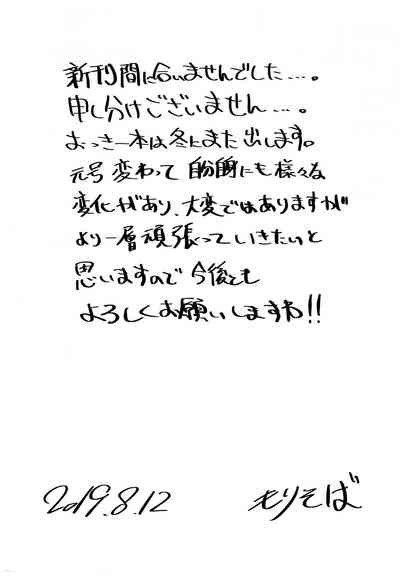 新刊間に合いませんでした…。
申し分けございません…。
おっきー本は冬にまた出します。
元号変わって自分的にも様々な
変化があり、大変ではありますが
より一層頑張っていきたいと
思いますので今後とも
よろしくお願いしますね!!
2019.8.12 もりそば